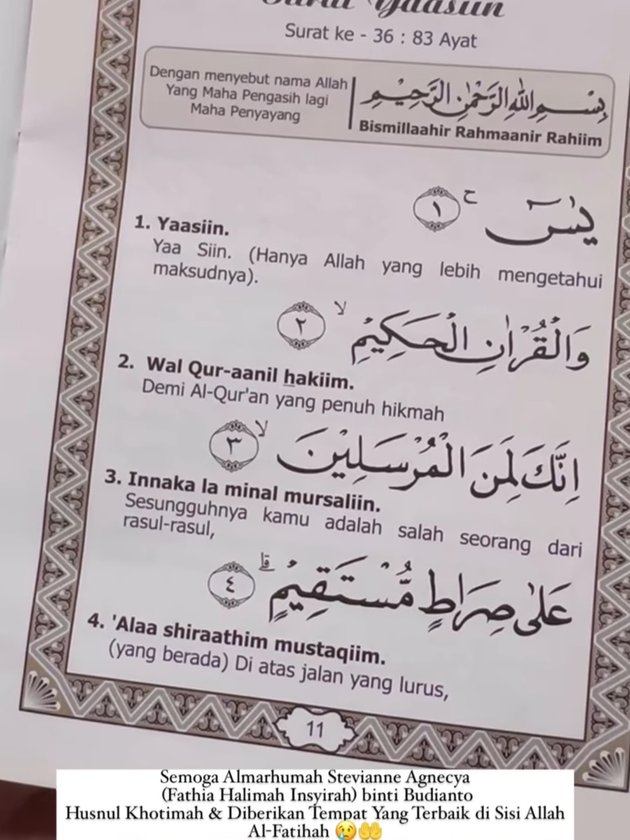 Surat Yaasiin
Surat ke - 36 : 83 Ayat
Dengan menyebut nama Allah
Yang Maha Pengasih lagi
Maha Penyayang
بِسْمِ اللهِ الرَّحْمٰنِ الرَّحِيْمِ
Bismillaahir Rahmaanir Rahiim
يٰسۤ ۚ ١
1. Yaasiin.
Yaa Siin. (Hanya Allah yang lebih mengetahui
maksudnya).
وَالْقُرْاٰنِ الْحَكِيْمِ ۙ ٢
2. Wal Qur-aanil hakiim.
Demi Al-Qur'an yang penuh hikmah
اِنَّكَ لَمِنَ الْمُرْسَلِيْنَ ۙ ٣
3. Innaka la minal mursaliin.
Sesungguhnya kamu adalah salah seorang dari
rasul-rasul,
عَلٰى صِرَاطٍ مُّسْتَقِيْمٍ ۗ ٤
4. 'Alaa shiraathim mustaqiim.
(yang berada) Di atas jalan yang lurus,
11
Semoga Almarhumah Stevianne Agnecya
(Fathia Halimah Insyirah) binti Budianto
Husnul Khotimah & Diberikan Tempat Yang Terbaik di Sisi Allah
Al-Fatihah 😢🤲